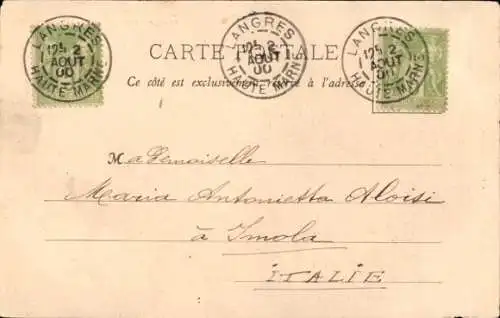 LANGRES
12⁵ 2
AOUT
00
HAUTE-MARNE
LANGRES
12⁵ 2
AOUT
00
HAUTE-MARNE
LANGRES
12⁵ 2
AOUT
00
HAUTE-MARNE
CARTE POSTALE
Ce côté est exclusivement réservé à l'adresse
Mademoiselle
Maria Antonietta Aloisi
à Imola
ITALIE